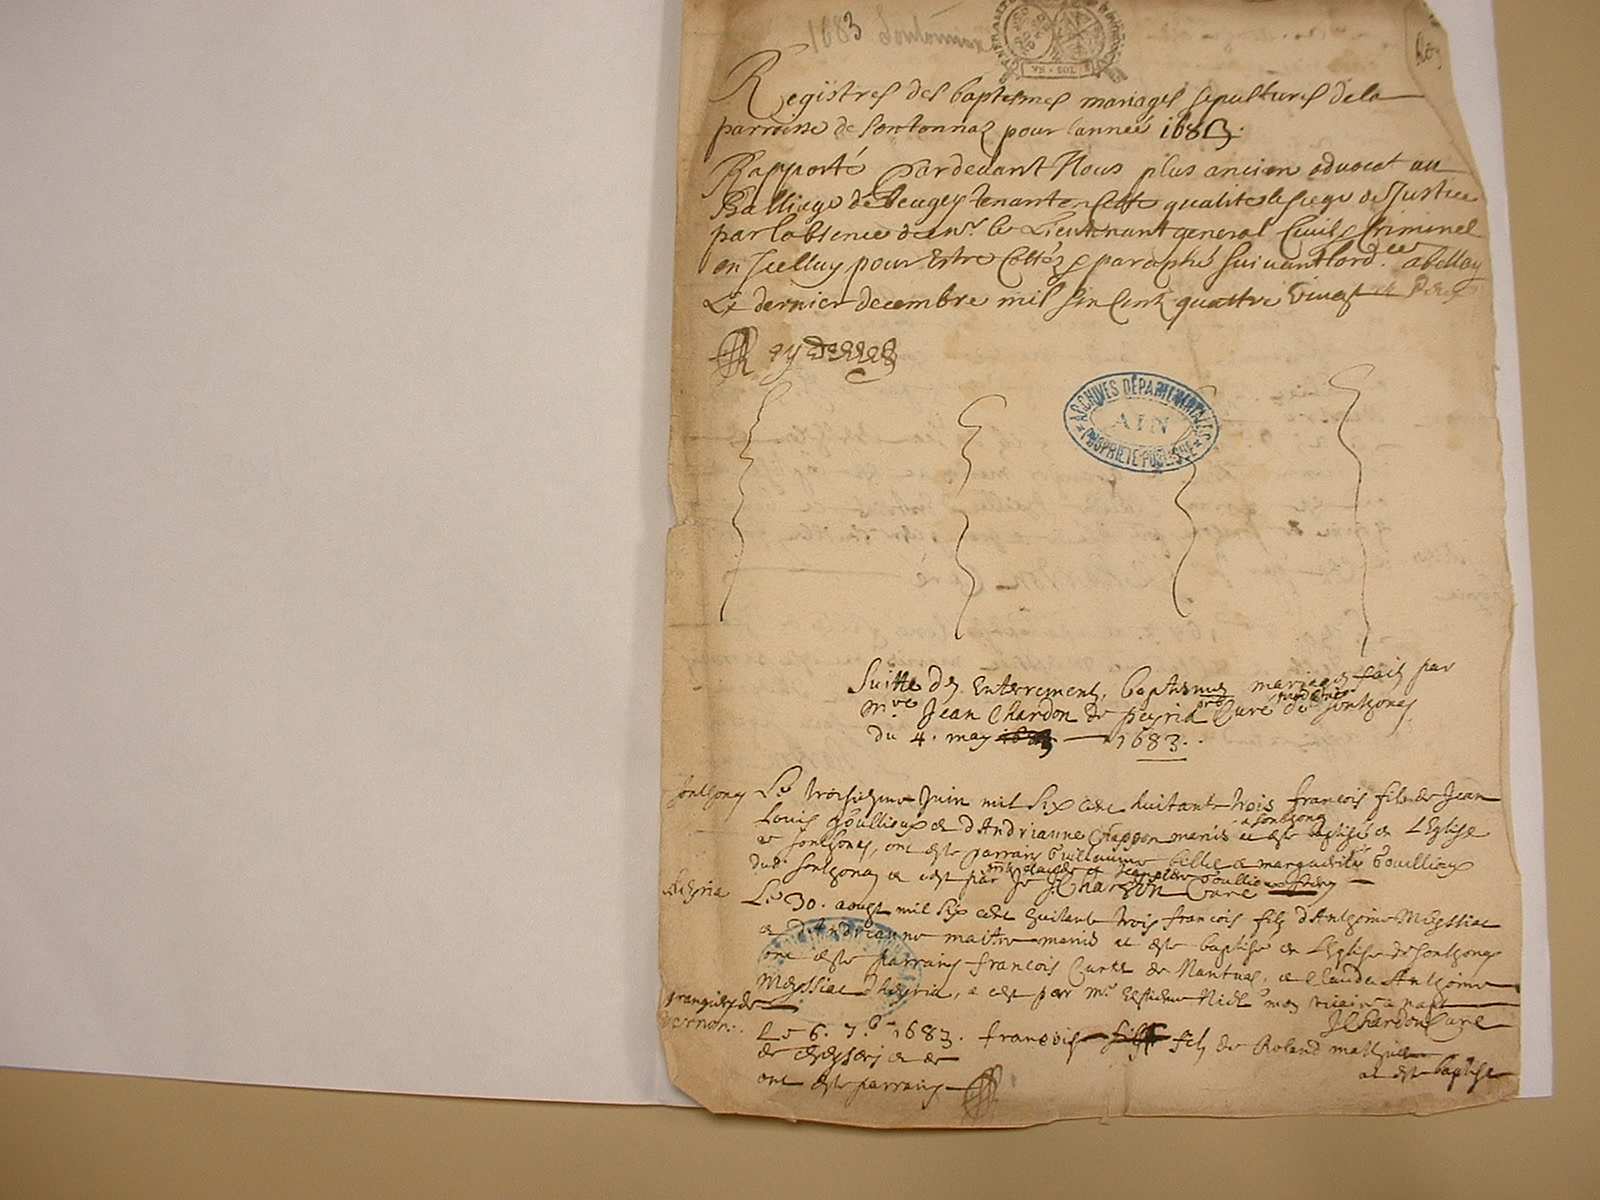 1683
GENERALITE
SOLS
Registres des baptesmes mariages sepultures de la
parroisse de Sontonnaz pour lannée 1683.
Rapporté Pardevant Nous plus ancien advocat au
Balliage de Beugey tenant en Cette qualité le siege de Justice
par labsence de mr. le Lieutenant general Civil & Criminel
en Icelluy pour Estre Cottéz & paraphé suivant lord.ce abellay
Le dernier decembre mil six Cent quattre vingt
ARCHIVES DÉPARTEMENTALES
AIN
PROPRIÉTÉ PUBLIQUE
Suitte des Enterrements, baptesmes mariages faits par
mre Jean Chardon de peyria pbre Curé de Sonthonay
du 4. may 1683.
Sonthonay Le troisiesme Juin mil six cent huitante trois francois fils de Jean
Louis Goullioux et d'Andrianne Chappon mariés a esté baptisé en L'Eglise
a Sonthonay
de Sonthonay, ont esté parrains Guillaume bellet et marguerite Goullioux
dud. Sonthonay et cest par Je JChardon Curé
Le 30. aougt mil six cent huitante trois francois filz d'Anthoine Meyssiat
et d'Andrianne maitre mariés et esté baptisé en L'Eglise de Sonthonay
ont esté parrains francois Curtet de Nantua, et Claude Anthoine
Meyssiat dheyria, a cest par mr. Estienne Nicod mon vicaire
JChardon Curé
Le 6. 7.bre 1683. francois filz de Roland mathieu
de et de a esté baptisé
ont esté parrains